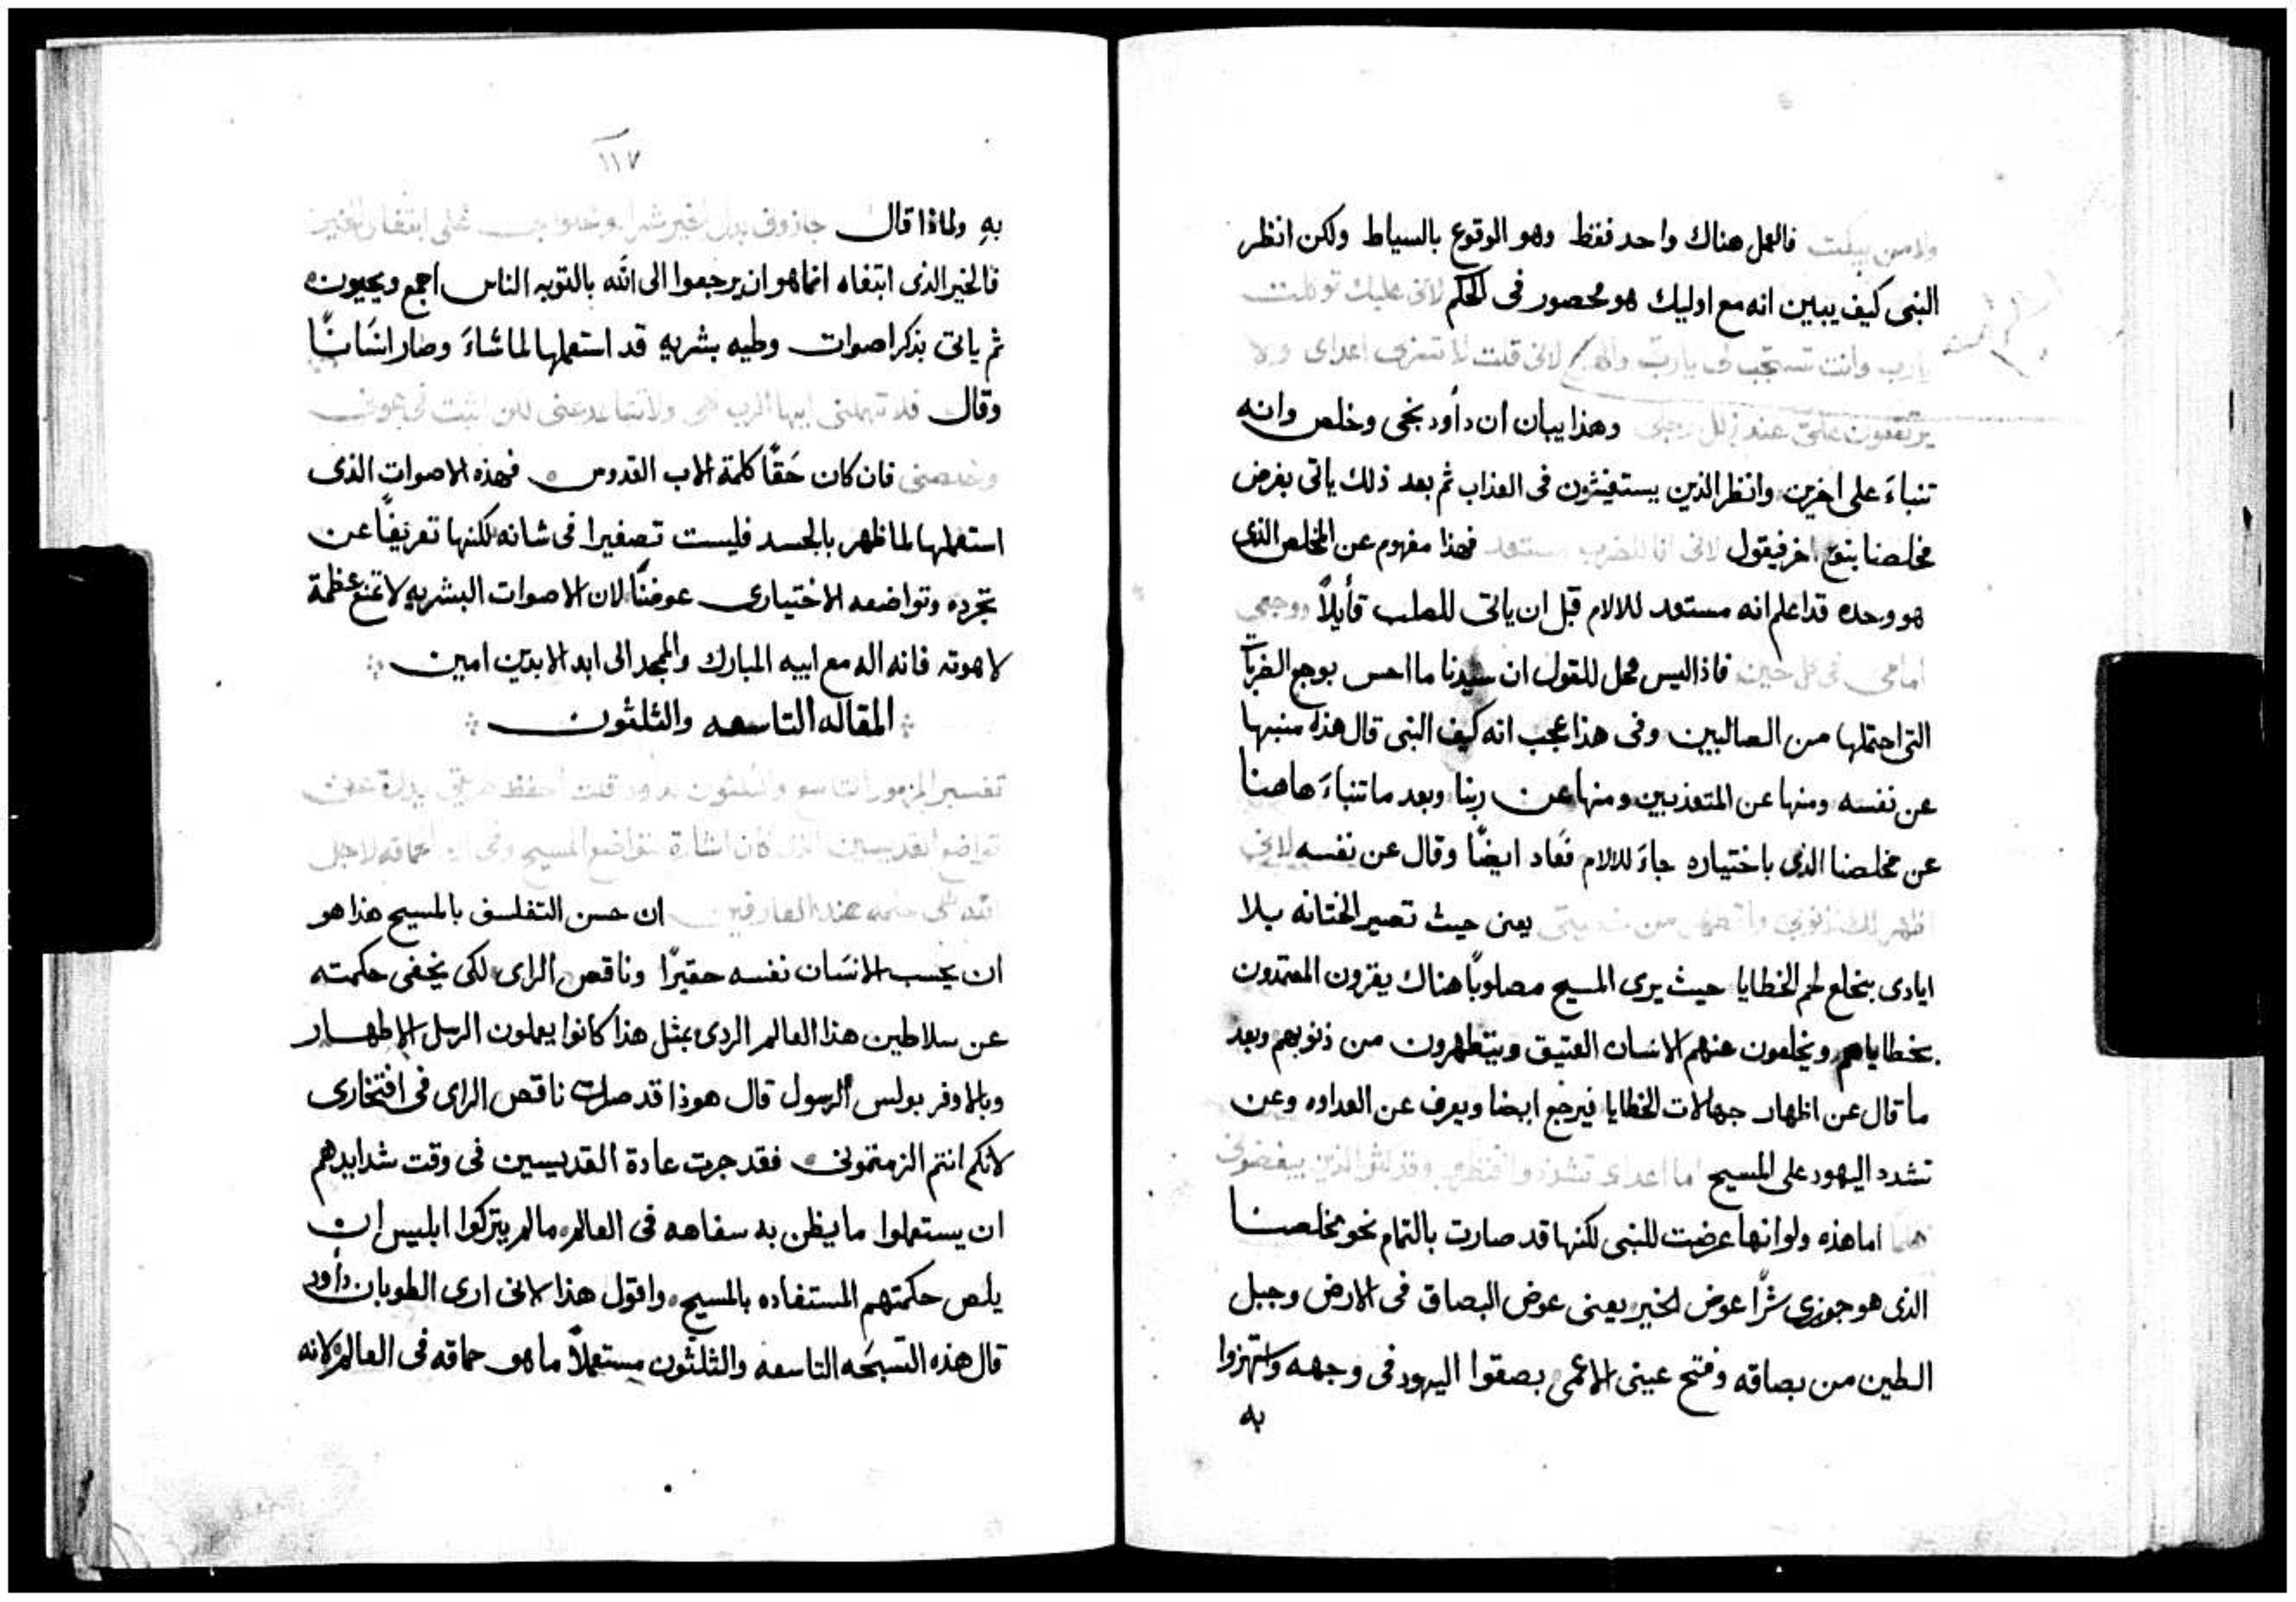 ولا من يبكت فالعمل هناك واحد فقط وهو الوقوع بالسياط ولكن انظر
النبى كيف يبين انه مع اوليك هو محصور فى الحكم لانى عليك توكلت
يارب وانت تستجب لى يا رب والهى لانى قلت لا تسرى اعداى ولا
يرتفعون علىّ عند زلل رجلى وهذا يبان ان داود نجى وخلص وانه
تنباءَ على اخرين وانظر الذين يستغيثون فى العذاب ثم بعد ذلك ياتى بغرض
مخلصنا بنوع اخر فيقول لانى انا للضرب مستعد فهذا مفهوم عن المخلص الذى
هو وحده قد اعلم انه مستعد للالام قبل ان ياتى للصلب قأيلاً ووجعى
امامى فى كل حين فاذا ليس محل للقول ان سيدنا ما احس بوجع الضربات
التى احتملها من الصالبين وفى هذا عجب انه كيف النبى قال هذه منبها
عن نفسه ومنها عن المتعذبين ومنها عن ربنا وبعد ما تنباءَ هاهنا
عن مخلصنا الذى باختياره جاءَ للالام فعَاد ايضًا وقال عن نفسه لانى
اظهر لك ذنوبى واتهم من خطيتى يعنى حيث تصير الختانه بلا
ايادى بنخلع لحم الخطايا حيث يرى المسيح مصلوبًا هناك يقرون المعتمدون
بخطاياهم ويخلعون عنهم الانسان العتيق ويتطهرون من ذنوبهم وبعد
ما قال عن اظهار جهالات الخطايا فيرجع ايضا ويعرف عن العداوه وعن
تشدد اليهود على المسيح اما اعداى تشدد وا الذين يبغضونى
اما هذه ولو انها عرضت للنبى لكنها قد صارت بالتمام نحو مخلصنا
الذى هو جوزى شرًا عوض الخير يعنى عوض البصاق فى الارض وجبل
الطين من بصاقه وفتح عينى الاعمى بصقوا اليهود فى وجهه واستهزوا
به
١١٧
بهِ ولماذا قال جازونى بدل الخير شرا على ابتغا الخير
فالخير الذى ابتغاه انما هو ان يرجعوا الى الله بالتوبه الناس اجمع ويحيون
ثم ياتى بذكر اصوات وطيه بشريهِ قد استعملها لما شاءَ وصار انسَانًا
وقال فلا تهملنى ايها الرب الهى ولا تتباعد عنى لكن التفت فى عونى
وخلصنى فان كان حَقًا كلمة الاب القدوس فهذه الاصوات الذى
استعملها لما ظهر بالجسد فليست تصغيرا فى شانه لكنها تعريفًا عن
تجرده وتواضعه الاختيارى عوضنًا لان الاصوات البشريهِ لا تمنع عظمة
لاهوته فانه اله مع ابيه المبارك والممجد الى ابد الابدين امين
المقاله التاسعه والثلثون
تفسير المزمور التاسع والثلثون لداود قلت احفظ طريقى
تواضع القديسين الذى كان اشارة تواضع المسيح حماقه لاجل
الله حكمه عند العارفين ان حسن التفلسف بالمسيح هذا هو
ان يحسب الانسَان نفسه حقيرًا وناقص الراى لكى يخفى حكمته
عن سلاطين هذا العالم الردى بمثل هذا كانوا يعملون الرسل الاطهار
وبالاوفر بولس الرسول قال هوذا قد صرت ناقص الراى فى افتخارى
لانكم انتم الزمتمونى فقد جرت عادة القديسين فى وقت شدايدهم
ان يستعملوا ما يظن به سفاهه فى العالم ما لم يتركوا ابليس ان
يلص حكمتهم المستفاده بالمسيح واقول هذا لانى ارى الطوبان داود
قال هذه التسبحَه التاسعه والثلثون مستعملاً ما هو حماقه فى العالم لانه